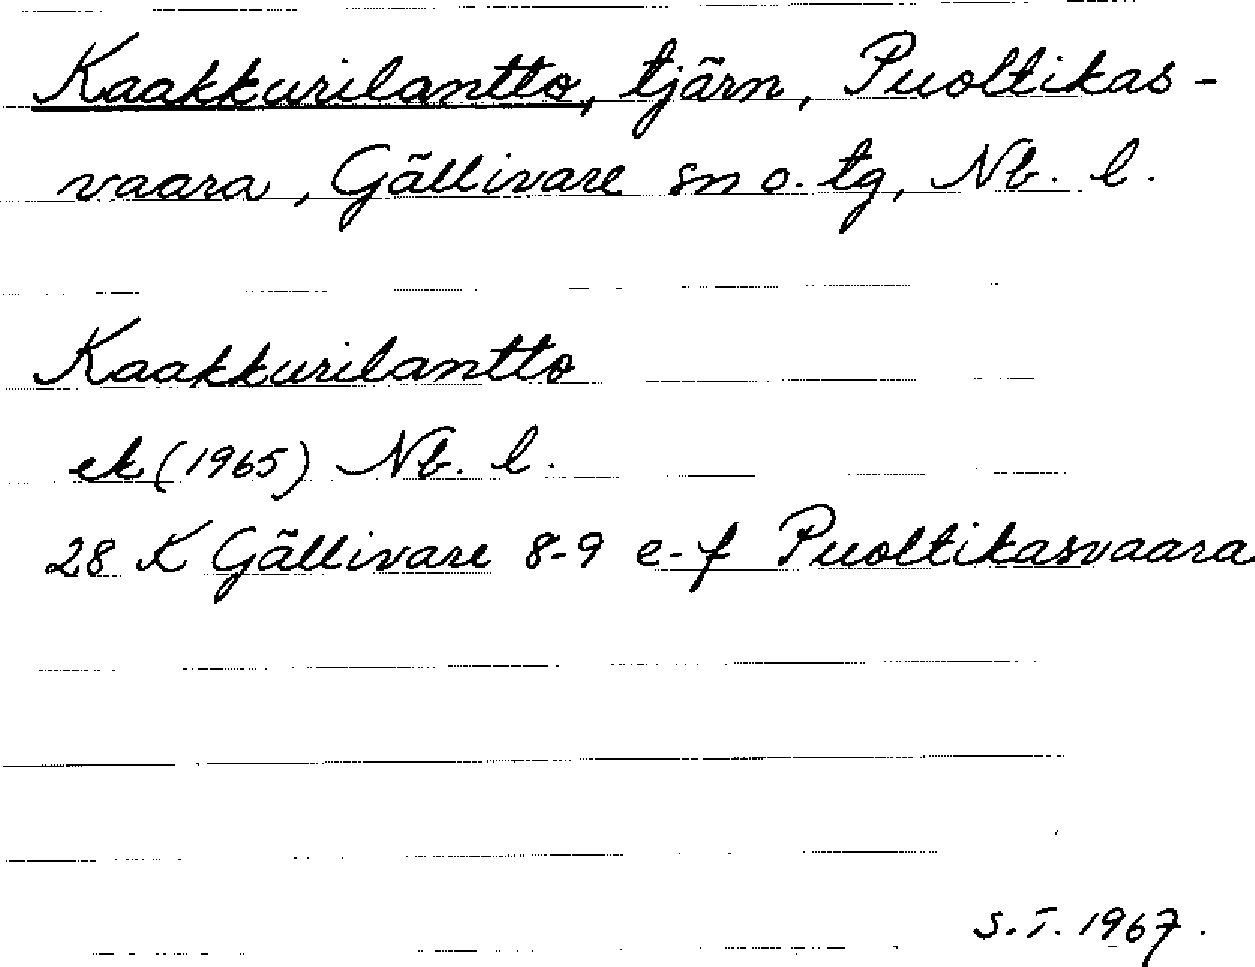 Kaakkurilantto, tjärn, Puoltikas-
vaara, Gällivare sn o. tg, Nb. l.
Kaakkurilantto
ek (1965) Nb. l.
28 K Gällivare 8-9 e-f Puoltikasvaara
S.T. 1967.